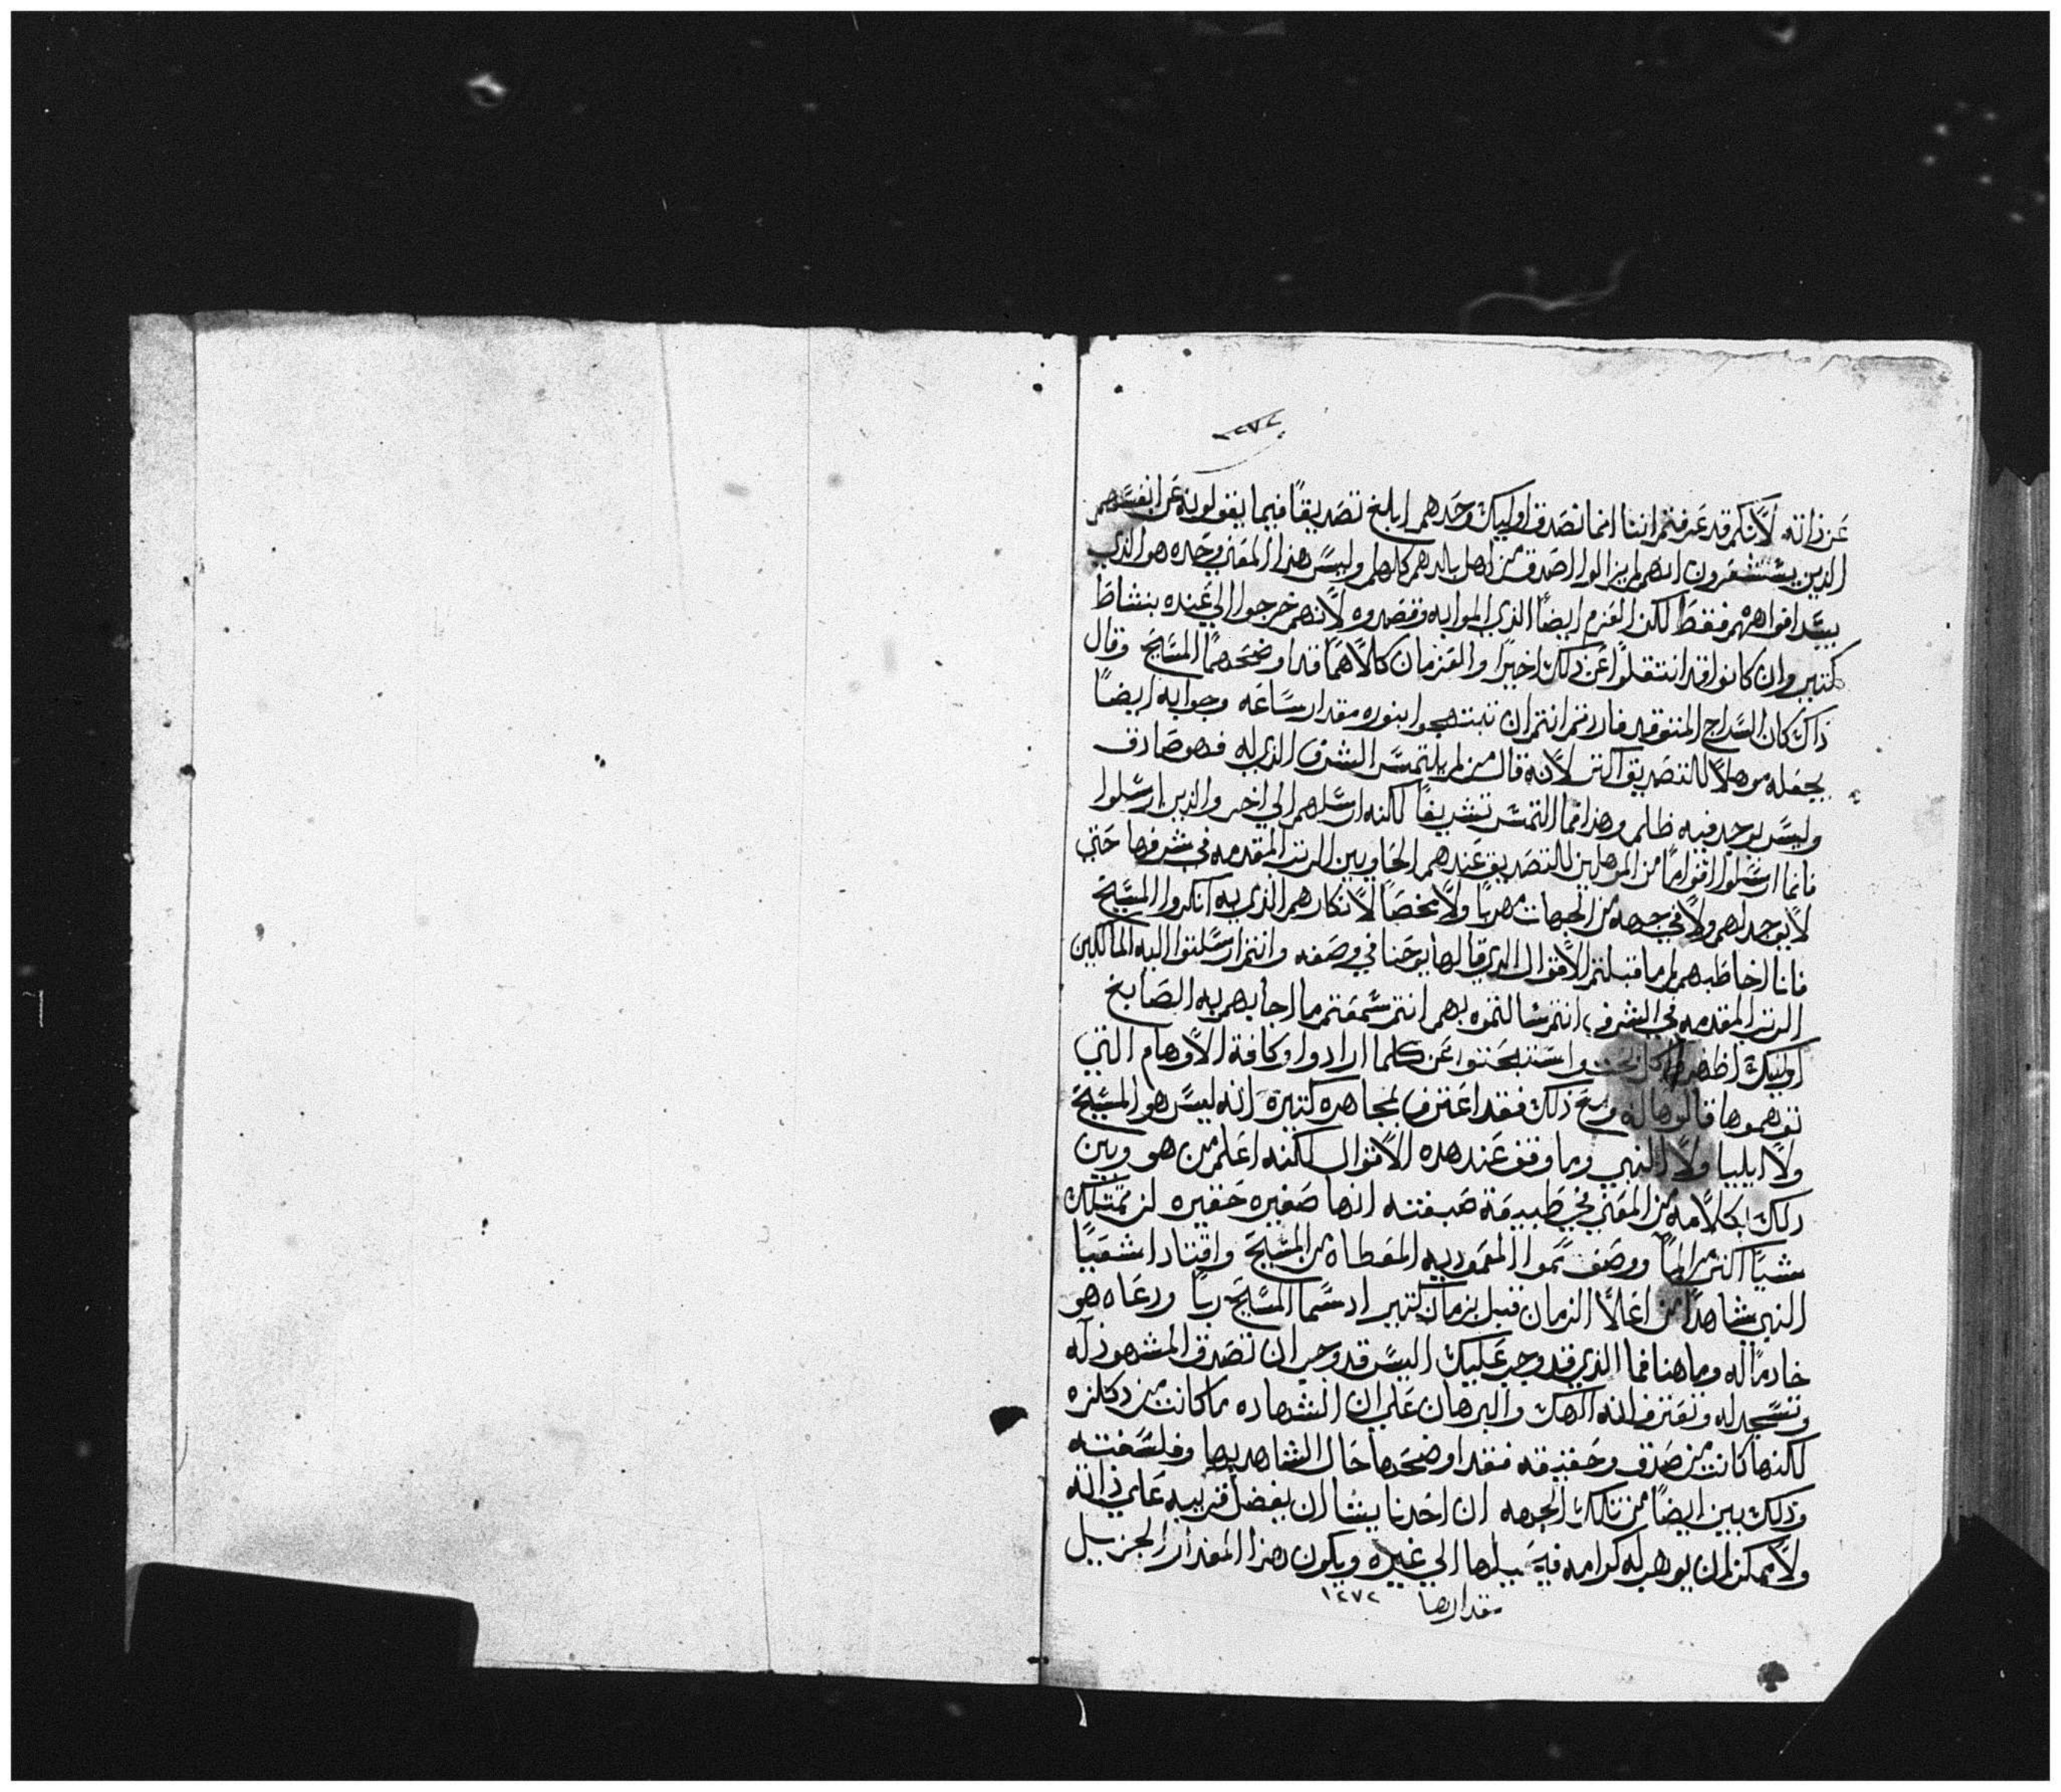 عن ذاته لانكم قد عرفتم اننا انما نصدق اوليك وحدهم ابلغ تصديقًا فيما يقولونه عن انفسهم
الذين يستشعرون انهم لم يزالوا اصدق من اهل بلدهم كلهم وليس هذا المعني وحده هو الذي
يسد افواههم فقط لكن العزم ايضًا الذي الموا به وقصدوه لانهم خرجوا الي عنده بنشاط
كتير وان كانوا قد انتقلوا عن ذلك اخيرًا والعزمان كلاهما قد اوضحهما المسيح وقال
ذاك كان السراج المتوقد فاردتم انتم ان تبتهجوا بنوره مقدار ساعه وجوابه ايضًا
يجعله موهلا للتصديق اكتر لانه قال من لم يلتمس الشرف الذي له فهو صادق
وليس يوجد فيه ظلم وهذا فما التمس تشريفًا لكنه ارسلهم الي اخر والذين ارسلوا
فانما ارسلوا اقوامًا من الموهلين للتصديق عندهم الحاويين الرتب المقدمه في شرفها حتي
لا يوجد لهم ولا في جهه من الجهات مهربًا ولا مخلصًا لانكارهم الذي به انكروا المسيح
فانا اخاطبهم لم ما قبلتم الاقوال الذي قالها يوحنا في وصفه وانتم ارسلتوا اليه المالكين
الرتب المقدمه في الشرف انتم سالتموه بهم انتم سمعتم ما اجابهم به الصابغ
اوليك اظهروا كل بحث واستبحتوا عن كلما ارادوا وكافة الاوهام التي
توهموها قالوها له ومع ذلك فقد اعترف بمجاهره كتيره انه ليس هو المسيح
ولا ايليا ولا النبي وما وقف عند هده الاقوال لكنه اعلم من هو وبين
دلك بكلامه من المعني في طبيعة صبغته انها صغيره حقيره لن تمتلك
شيًا اكتر من الما ووصف سموا المعموديه المعطاه من المسيح واقتاد اشعيا
النبي شاهدًا من اعلا الزمان قبل بزمان كتير اد سما المسيح ربًا ودعاه هو
خادمًا له وما هنا فما الذي قد وجب عليك اليس قد وجب ان تصدق المشهود له
وتسجد له وتعترف انه الهك والبرهان علي ان الشهاده ما كانت من
لكنها كانت من صدق وحقيقه فقد اوضحها حال الشاهد بها وفلسفته
وذلك بين ايضًا من تلك الجهه ان احدنا يشا ان يفضل قريبه علي ذاته
ولا يمكن ان يوهب له كرامه فيحيلها الي غيره ويكون هذا المقدار الجزيل
مقدارها ١٢٧٢